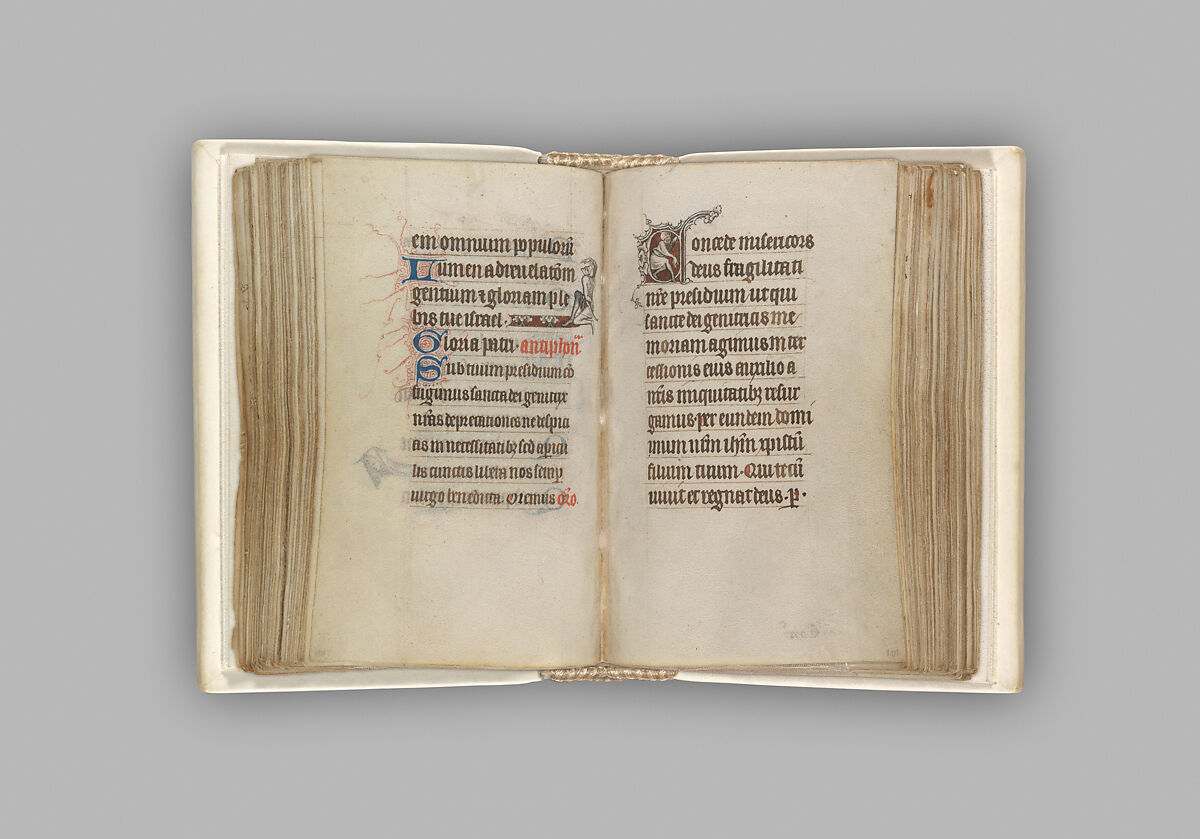 em omnium populorū
Lumen ad reuelatōm
gentium ⁊ gloriam ple
bis tue israel.
Gloria patri. antiphoñ
Sub tuum presidium cō
fugimus sancta dei genitrix
nr̄as deprecationes ne despici
as in necessitatibꝫ sed a peric̄
lis cunctis libera nos semꝑ
uirgo benedicta. Oremus or̄o.
Concede misericors
deus fragilitati
nr̄e presidium ut qui
sancte dei genitricis me
moriam agimus inter
cessionis eius auxilio a
nr̄is iniquitatibꝫ resur
gamus. per eundem domi
num nr̄m ihm̄ xpistū
filium tuum. Qui tecū
uiuit et regnat deus. p̲.
101